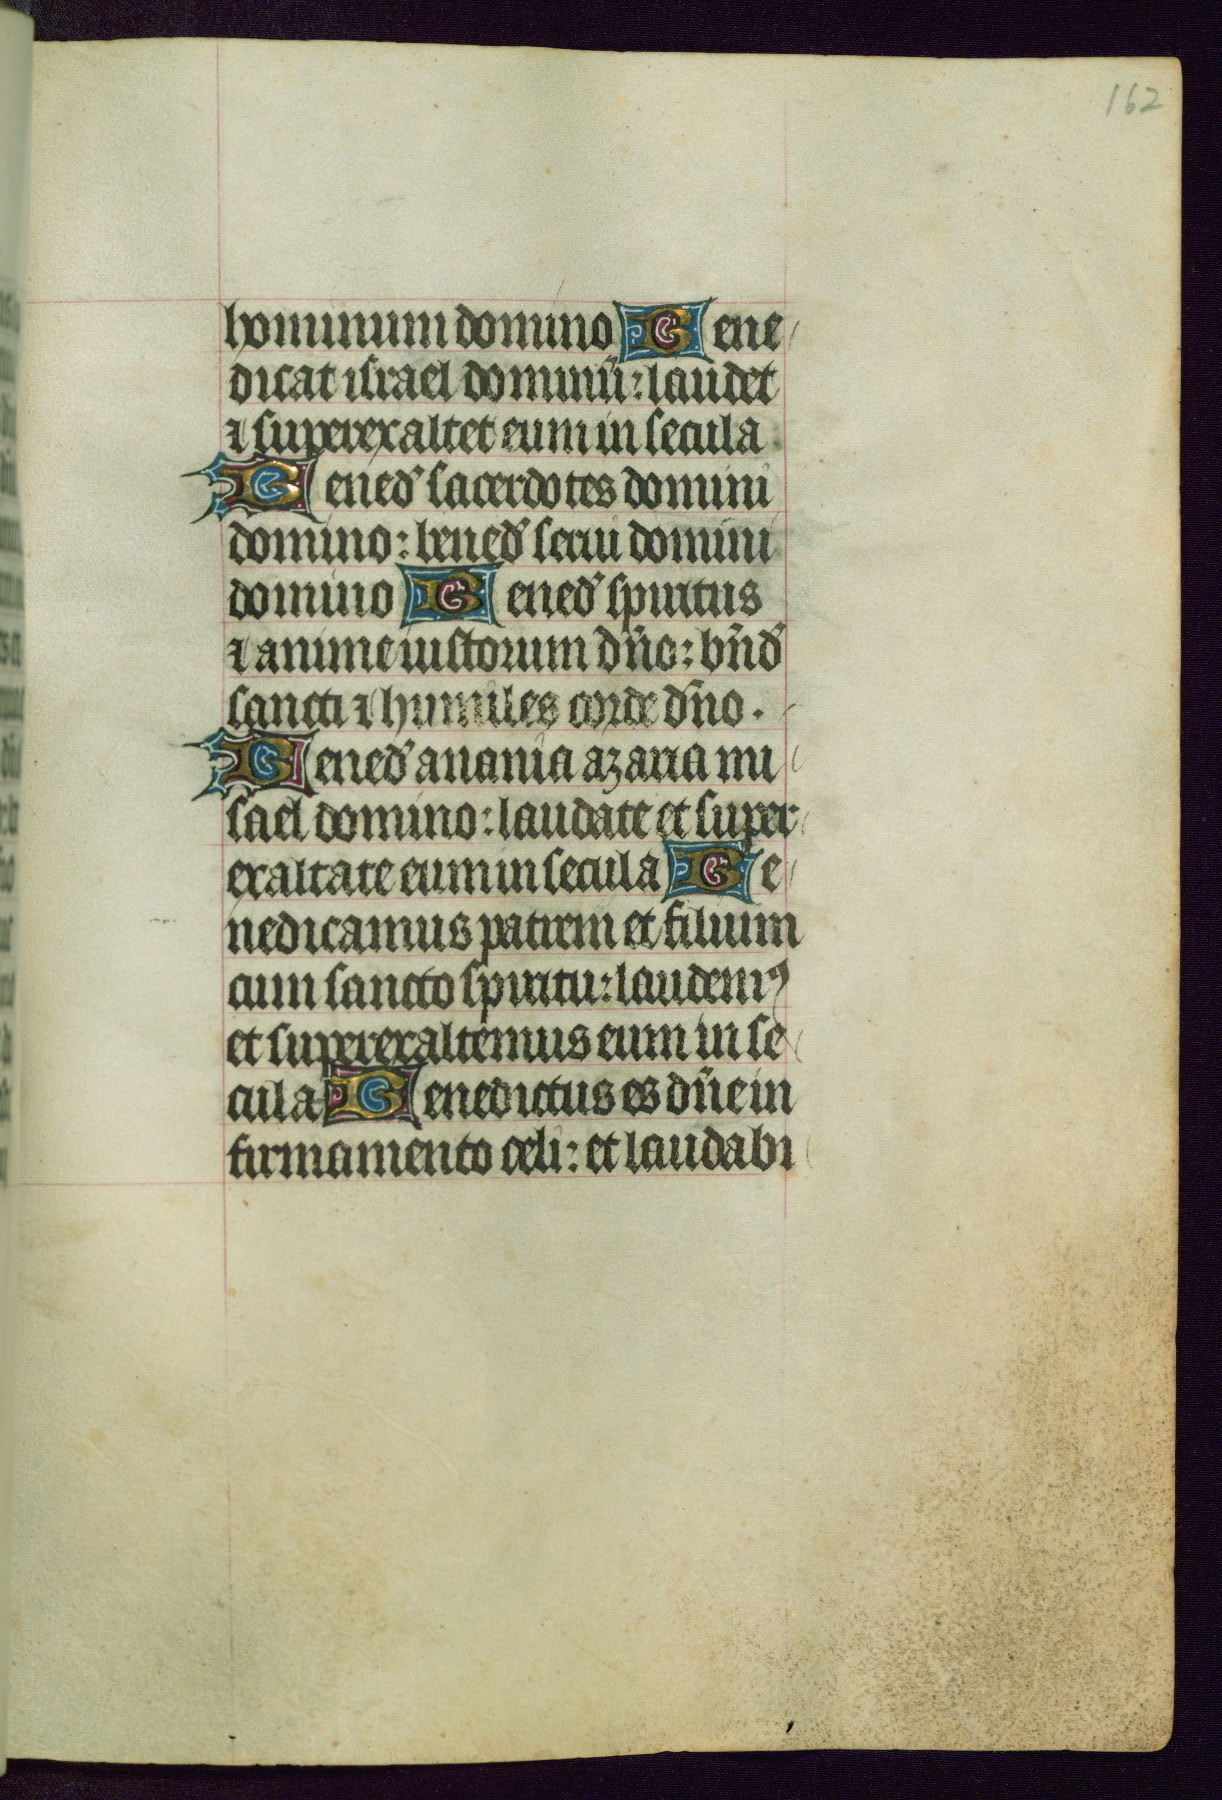 162
hominum domino Bene
dicat israel dominū: laudet
⁊ superexaltet eum in secula
Bened̾ sacerdotes domini
domino: bened̾ serui domini
domino Bened̾ spiritus
⁊ anime iustorum dn̄o: bn̄d̾
sancti ⁊ humiles corde dn̄o.
Bened̾ anania azaria mi
sael domino: laudate et super
exaltate eum in secula Be
nedicamus patrem et filium
cum sancto spiritu: laudemꝰ
et superexaltemus eum in se
cula Benedictus es dn̄e in
firmamento celi: et laudabi